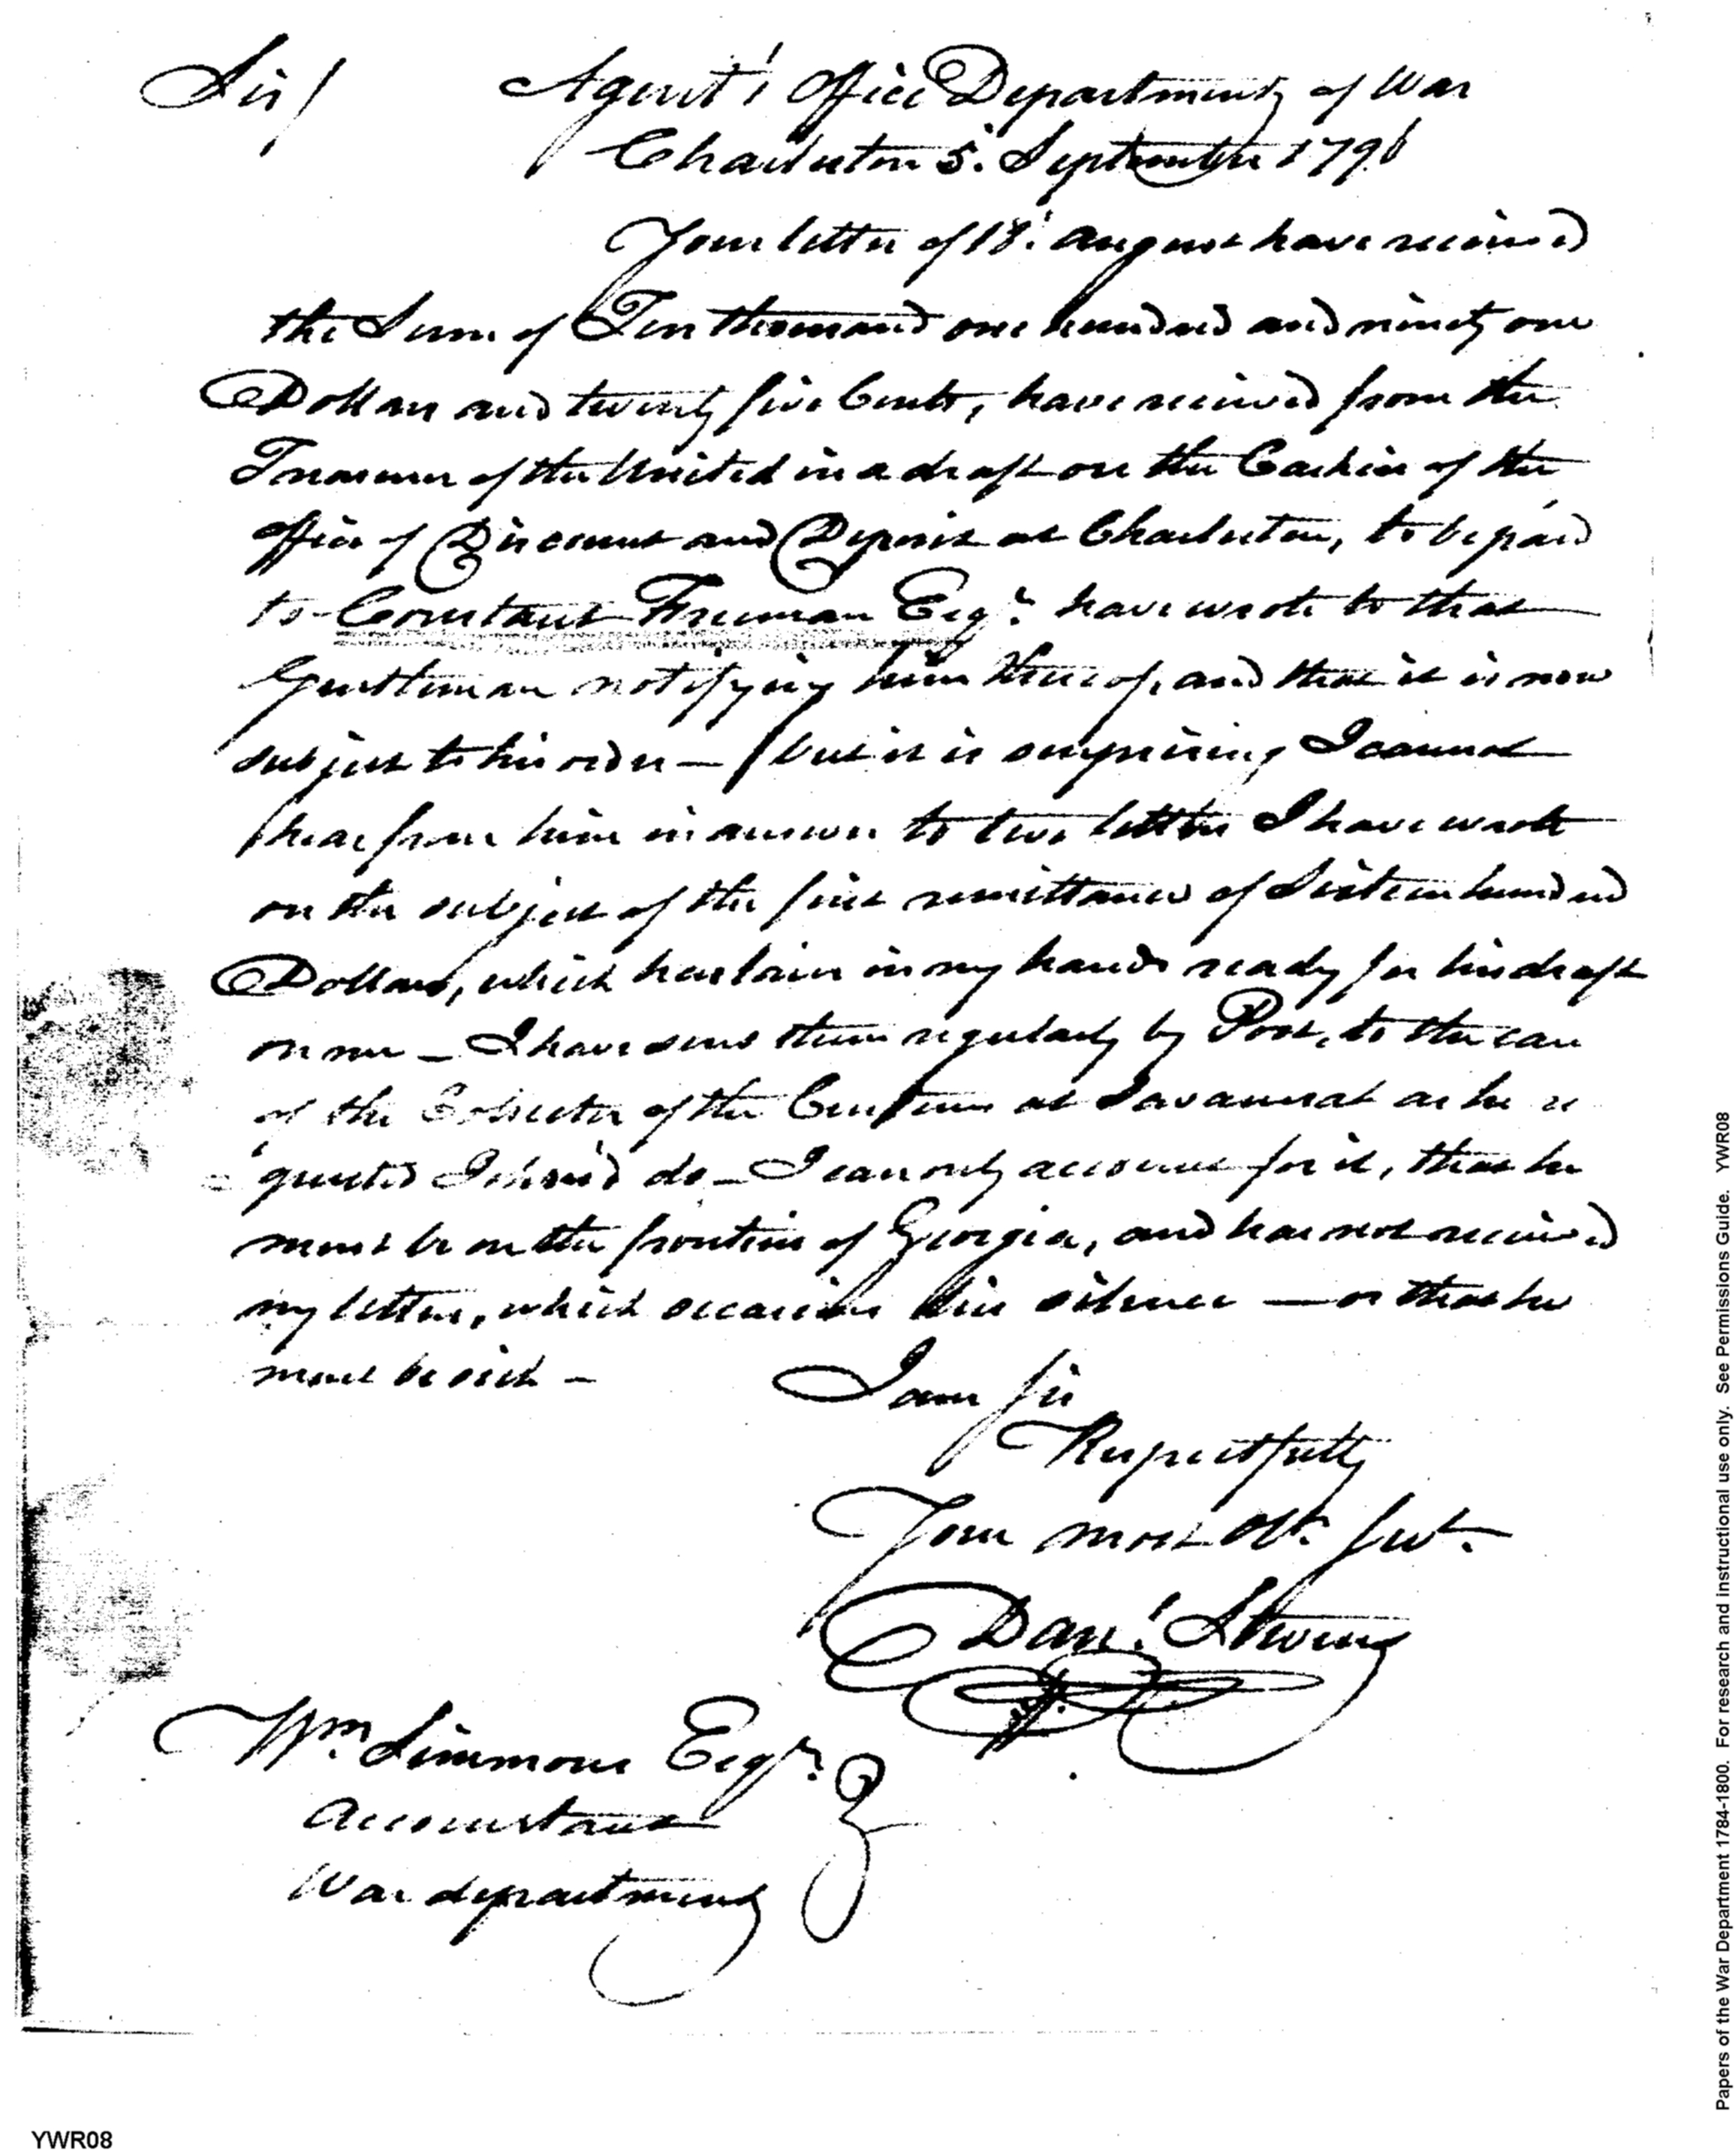 Sir/ Agent's Office Department of War
Charleston 5. September 1796
Your letter of 18. August have received
the Sum of Ten thousand one hundred and ninety one
Dollars and twenty five Cents, have received from the
Treasurer of the United in a draft on the Cashier of the
office of Discount and Deposit at Charleston, to be paid
to Constant Freeman Esqr. have wrote to that
Gentleman notifying him thereof, and that it is now
subject to his order — but it is surprising I cannot
hear from him in answer to two letters I have wrote
on the subject of the first remittance of Sixteen hundred
Dollars, which has lain in my hands ready for his draft
on me — I have sent them regularly by Post, to the care
of the Collector of the Customs at Savannah as he re
quested I shou'd do — I can only account for it, that he
must be on the frontiers of Georgia, and has not received
my letters, which occasions his silence — or that he
must be sick —
I am Sir
Respectfully
Your most Obt. Servt.
Danl. Stevens
Wm Simmons Esqr.
Accountant
War department
YWR08
Papers of the War Department 1784-1800. For research and instructional use only. See Permissions Guide. YWR08